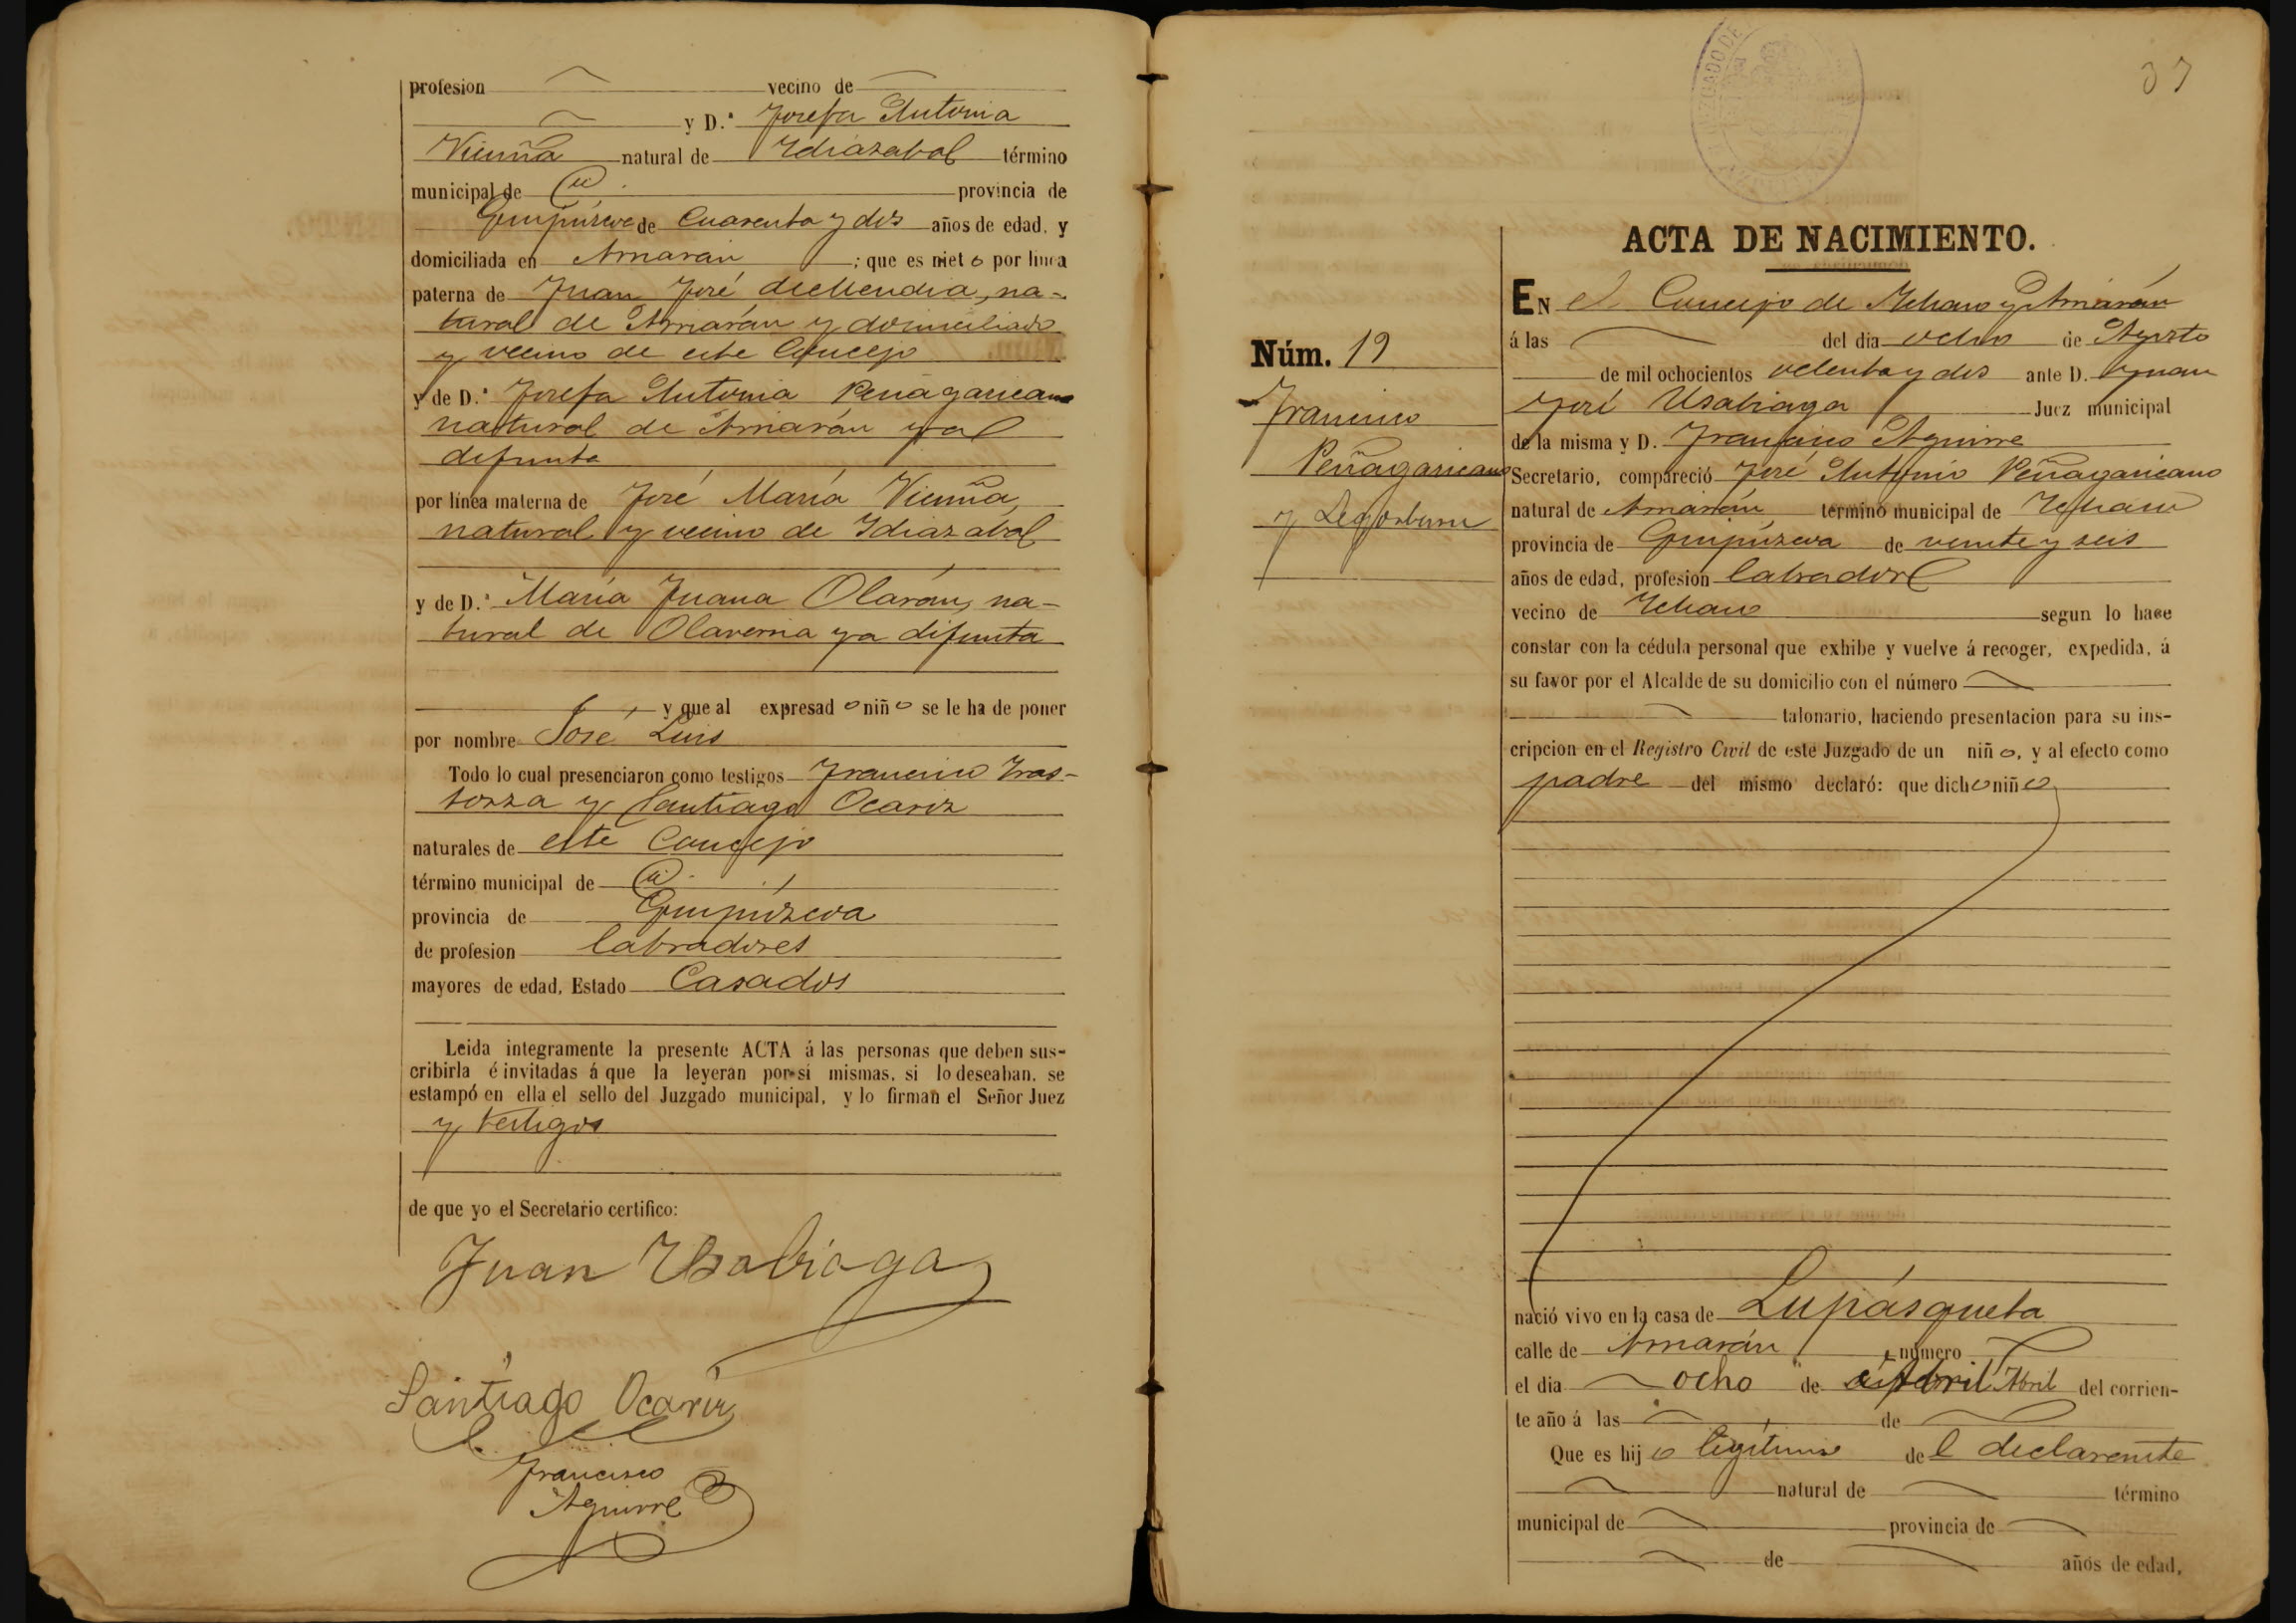 profesion vecino de
y D.ª Josefa Antonia
Vicuña natural de Idiazabal término
municipal de id. provincia de
Guipúzcoa de Cuarenta y dos años de edad, y
domiciliada en Amarán ; que es nieto por linea
paterna de Juan José de Mendia, na-
tural de Amarán y domiciliado
y vecino de este Concejo
y de D.ª Josefa Antonia Peñagaricano
natural de Amarán ya
difunta
por línea materna de José María Vicuña,
natural y vecino de Idiazabal
y de D.ª María Juana Olarán, na-
tural de Olaverria ya difunta
y que al expresado niño se le ha de poner
por nombre José Luis
Todo lo cual presenciaron como testigos Francisco Iras-
torza y Santiago Ocariz
naturales de este Concejo
término municipal de id.
provincia de Guipúzcoa
de profesion labradores
mayores de edad, Estado Casados
Leida integramente la presente ACTA á las personas que deben sus-
cribirla é invitadas á que la leyeran por sí mismas, si lo deseaban, se
estampó en ella el sello del Juzgado municipal, y lo firman el Señor Juez
y testigos
de que yo el Secretario certifico:
Juan Usabiaga
Santiago Ocariz
Francisco
Aguirre
37
JUZGADO DE
ACTA DE NACIMIENTO.
Núm. 19
Francisco
Peñagaricano
y Legorburu
EN el Concejo de Ichaso y Amarán
á las del dia ocho de Agosto
de mil ochocientos ochenta y dos ante D. Juan
José Usabiaga Juez municipal
de la misma y D. Francisco Aguirre
Secretario, compareció José Antonio Peñagaricano
natural de Amarán término municipal de Ichaso
provincia de Guipúzcoa de veinte y seis
años de edad, profesion labrador
vecino de Ichaso segun lo hace
constar con la cédula personal que exhibe y vuelve á recoger, expedida, á
su favor por el Alcalde de su domicilio con el número
talonario, haciendo presentacion para su ins-
cripcion en el Registro Civil de este Juzgado de un niño, y al efecto como
padre del mismo declaró: que dicho niño
nació vivo en la casa de Lupásqueta
calle de Amarán número
el dia ocho de Abril Abril del corrien-
te año á las de
Que es hijo legítimo del declarente
natural de término
municipal de provincia de
de años de edad,